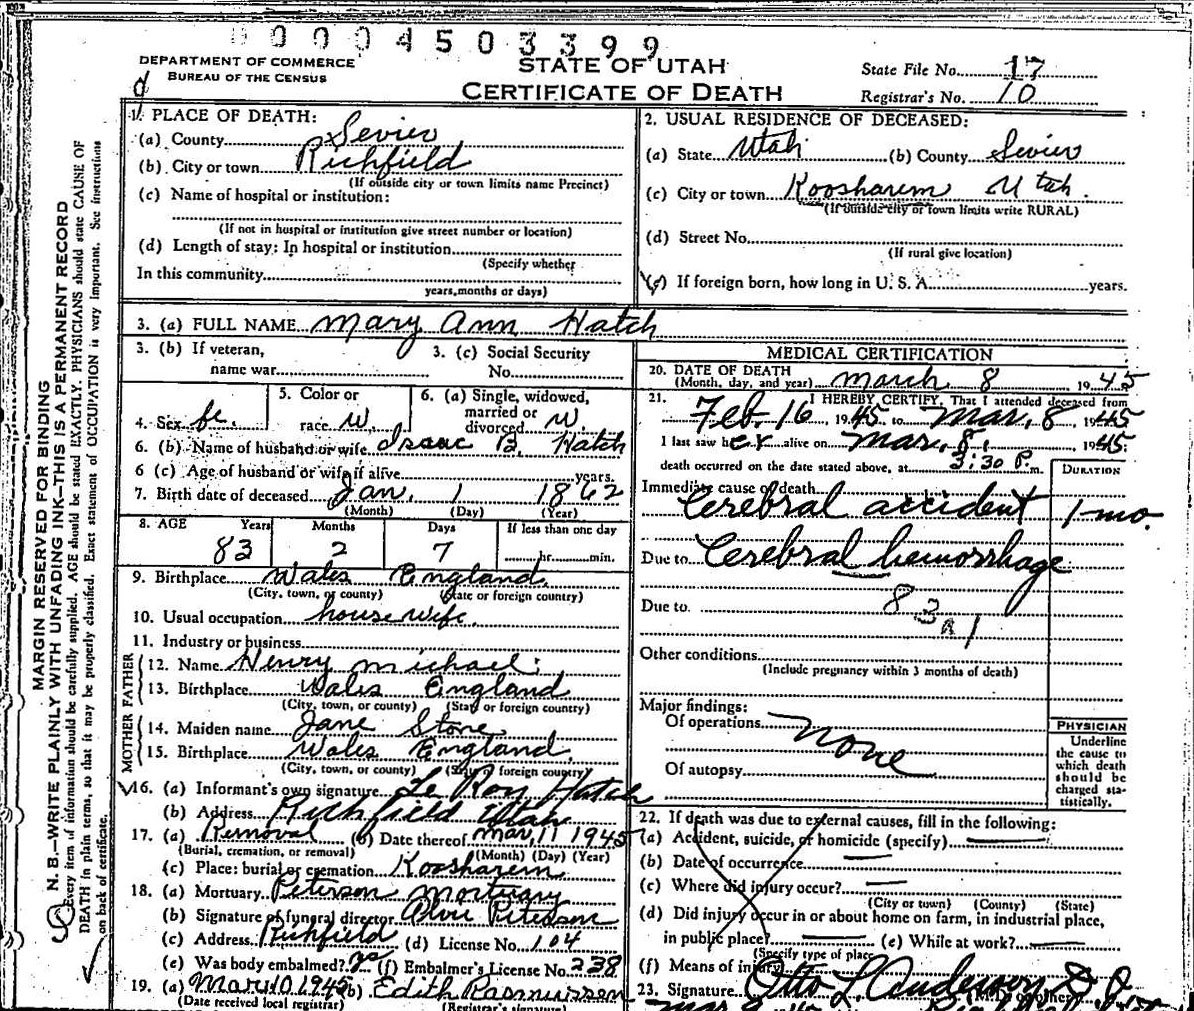 0004503399
DEPARTMENT OF COMMERCE
BUREAU OF THE CENSUS
STATE OF UTAH
CERTIFICATE OF DEATH
State File No. 17
Registrar's No. 10
MARGIN RESERVED FOR BINDING
N. B.—WRITE PLAINLY WITH UNFADING INK—THIS IS A PERMANENT RECORD
Every item of information should be carefully supplied. AGE should be stated EXACTLY. PHYSICIANS should state CAUSE OF
DEATH in plain terms, so that it may be properly classified. Exact statement of OCCUPATION is very important. See instructions
on back of certificate.
1. PLACE OF DEATH:
(a) County Sevier
(b) City or town Richfield
(If outside city or town limits name Precinct)
(c) Name of hospital or institution:
(If not in hospital or institution give street number or location)
(d) Length of stay: In hospital or institution
(Specify whether
In this community
years, months or days)
2. USUAL RESIDENCE OF DECEASED:
(a) State Utah (b) County Sevier
(c) City or town Koosharem Utah.
(If outside city or town limits write RURAL)
(d) Street No.
(If rural give location)
(e) If foreign born, how long in U. S. A. years.
3. (a) FULL NAME Mary Ann Hatch
3. (b) If veteran,
name war
3. (c) Social Security
No.
4. Sex fe.
5. Color or
race W.
6. (a) Single, widowed,
married or
divorced W.
6. (b) Name of husband or wife Isaac B. Hatch
6 (c) Age of husband or wife if alive years.
7. Birth date of deceased Jan. 1 1862
(Month) (Day) (Year)
8. AGE Years Months Days If less than one day
83 2 7 hr. min.
9. Birthplace Wales England
(City, town, or county) (State or foreign country)
10. Usual occupation housewife.
11. Industry or business
FATHER
12. Name Henry Michael
13. Birthplace Wales England
(City, town, or county) (State or foreign country)
MOTHER
14. Maiden name Jane Stone
15. Birthplace Wales England
(City, town, or county) (State or foreign country)
16. (a) Informant's own signature Le Roy Hatch
(b) Address Richfield Utah
17. (a) Removal (b) Date thereof Mar, 11 1945
(Burial, cremation, or removal) (Month) (Day) (Year)
(c) Place: burial or cremation Koosharem
18. (a) Mortuary Peterson Mortuary
(b) Signature of funeral director Alvie Peterson
(c) Address Richfield (d) License No. 104
(e) Was body embalmed? (f) Embalmer's License No. 238
19. (a) Mar 10 1945 (b) Edith Rasmussen
(Date received local registrar) (Registrar's signature)
MEDICAL CERTIFICATION
20. DATE OF DEATH
(Month, day, and year) March 8 1945
21. I HEREBY CERTIFY, That I attended deceased from
Feb. 16 1945 to Mar, 8 1945
I last saw her alive on Mar, 8, 1945
death occurred on the date stated above, at 3:30 P. m.
DURATION
Immediate cause of death
Cerebral accident 1-mo.
Due to Cerebral hemorrhage
Due to
83 a 1
Other conditions
(Include pregnancy within 3 months of death)
Major findings:
Of operations None
Of autopsy
PHYSICIAN
Underline
the cause to
which death
should be
charged sta-
tistically.
22. If death was due to external causes, fill in the following:
(a) Accident, suicide, or homicide (specify)
(b) Date of occurrence
(c) Where did injury occur?
(City or town) (County) (State)
(d) Did injury occur in or about home on farm, in industrial place,
in public place? (e) While at work?
(Specify type of place
(f) Means of injury
23. Signature Otto L Anderson D.O.